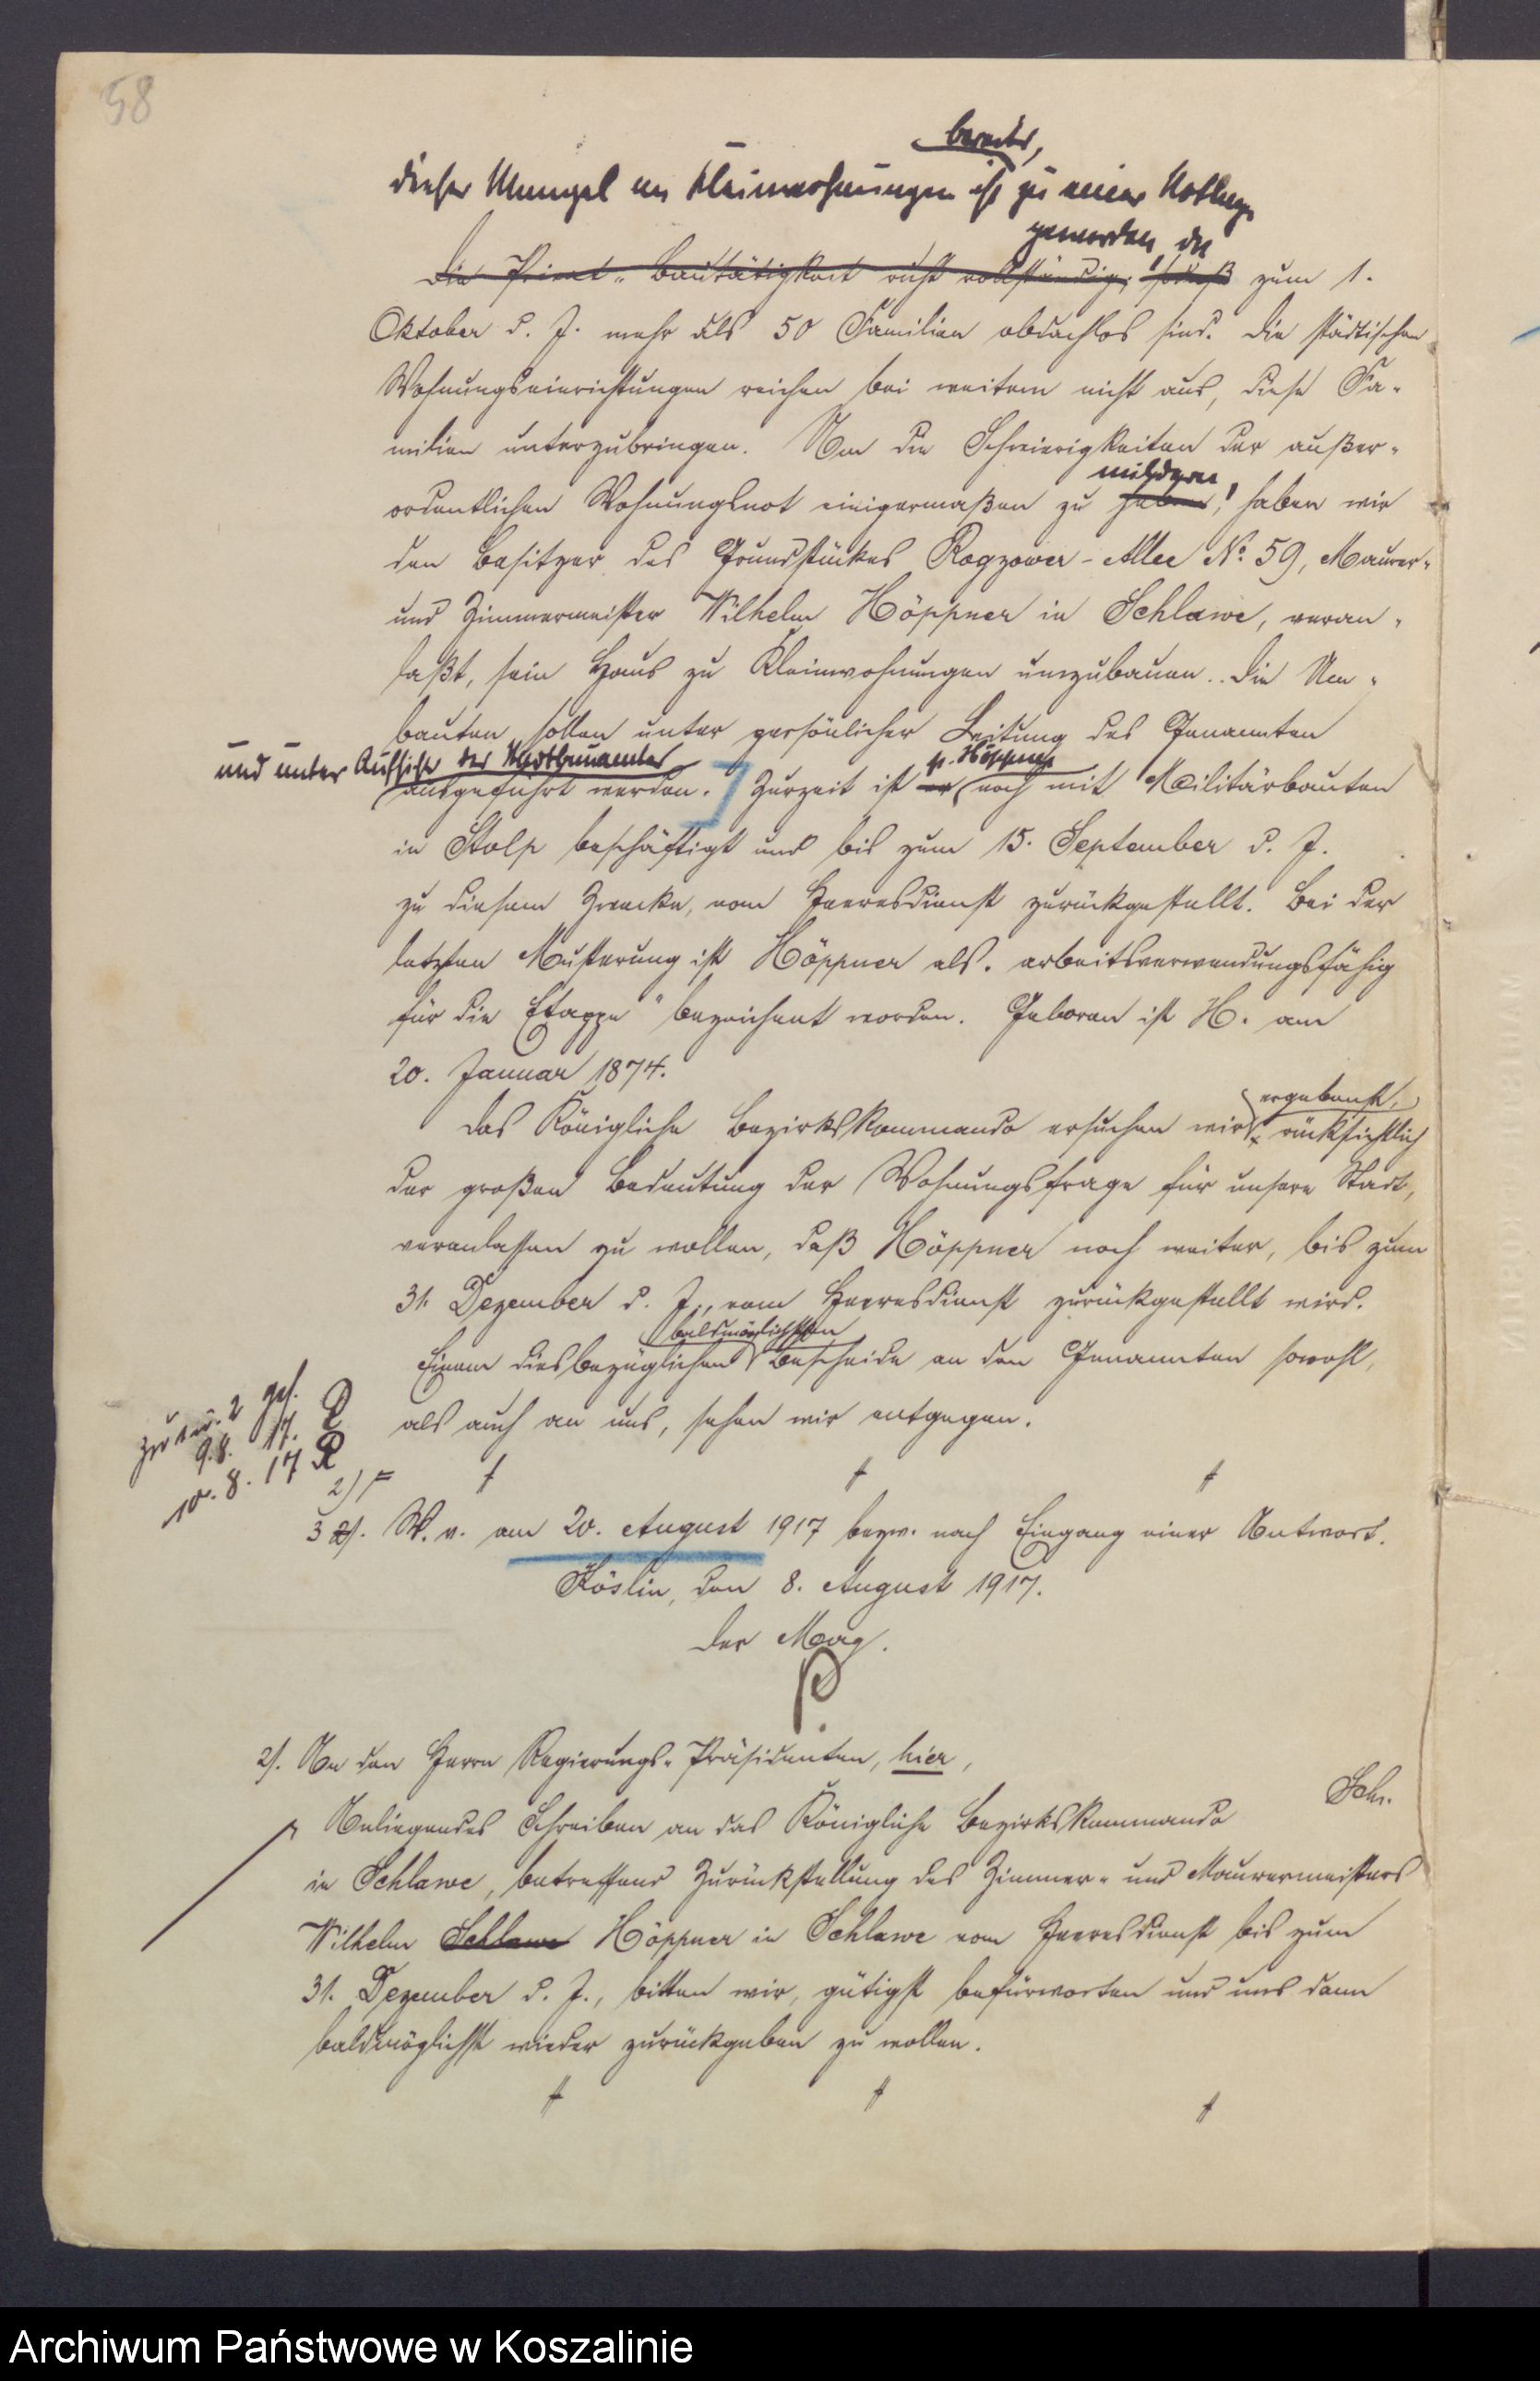 58
bereits
dieser Mangel an Kleinwohnungen ist zu einer Notlage
geworden, die
Die Privat-Bautätigkeit ruht vollständig, sodaß zum 1.
Oktober d. J. mehr als 50 Familien obdachlos sind. Die städtischen
Wohnungseinrichtungen reichen bei weitem nicht aus, diese Fa-
milien unterzubringen. Um die Schwierigkeiten der außer-
mildern
ordentlichen Wohnungsnot einigermaßen zu heben, haben wir
den Besitzer des Grundstückes Rogzower-Allee No. 59, Maurer-
und Zimmermeister Wilhelm Höppner in Schlawe, veran-
laßt, sein Haus zu Kleinwohnungen umzubauen. Die Um-
bauten sollen unter persönlicher Leitung des Genannten
und unter Aufsicht des Stadtbauamtes
p. Höppner
ausgeführt werden. Zurzeit ist er noch mit Militärbauten
in Stolp beschäftigt und bis zum 15. September d. J.
zu diesem Zwecke, vom Heeresdienst zurückgestellt. Bei der
letzten Musterung ist Höppner als „arbeitsverwendungsfähig
für die Etappe“ bezeichnet worden. Geboren ist H. am
20. Januar 1874.
ergebenst,
Das Königliche Bezirkskommando ersuchen wir rücksichtlich
der großen Bedeutung der Wohnungsfrage für unsere Stadt,
veranlassen zu wollen, daß Höppner noch weiter, bis zum
31. Dezember d. J., vom Heeresdienst zurückgestellt wird.
baldmöglichsten
Einem diesbezüglichen Bescheide an den Genannten sowohl,
als auch an uns, sehen wir entgegen.
zu 1 u. 2 gef.
9.8. 17.
10. 8. 17
2)
3 2). W. v. am 20. August 1917 bezw. nach Eingang einer Antwort.
Köslin, den 8. August 1917.
Der Mag.
P.
2). An den Herrn Regierungs-Präsidenten, hier,
Schr.
Anliegendes Schreiben an das Königliche Bezirkskommando
in Schlawe, betreffend Zurückstellung des Zimmer- und Maurermeisters
Wilhelm Schlawe Höppner in Schlawe vom Heeresdienst bis zum
31. Dezember d. J., bitten wir, gütigst befürworten und uns dann
baldmöglichst wieder zurückgeben zu wollen.
Archiwum Państwowe w Koszalinie